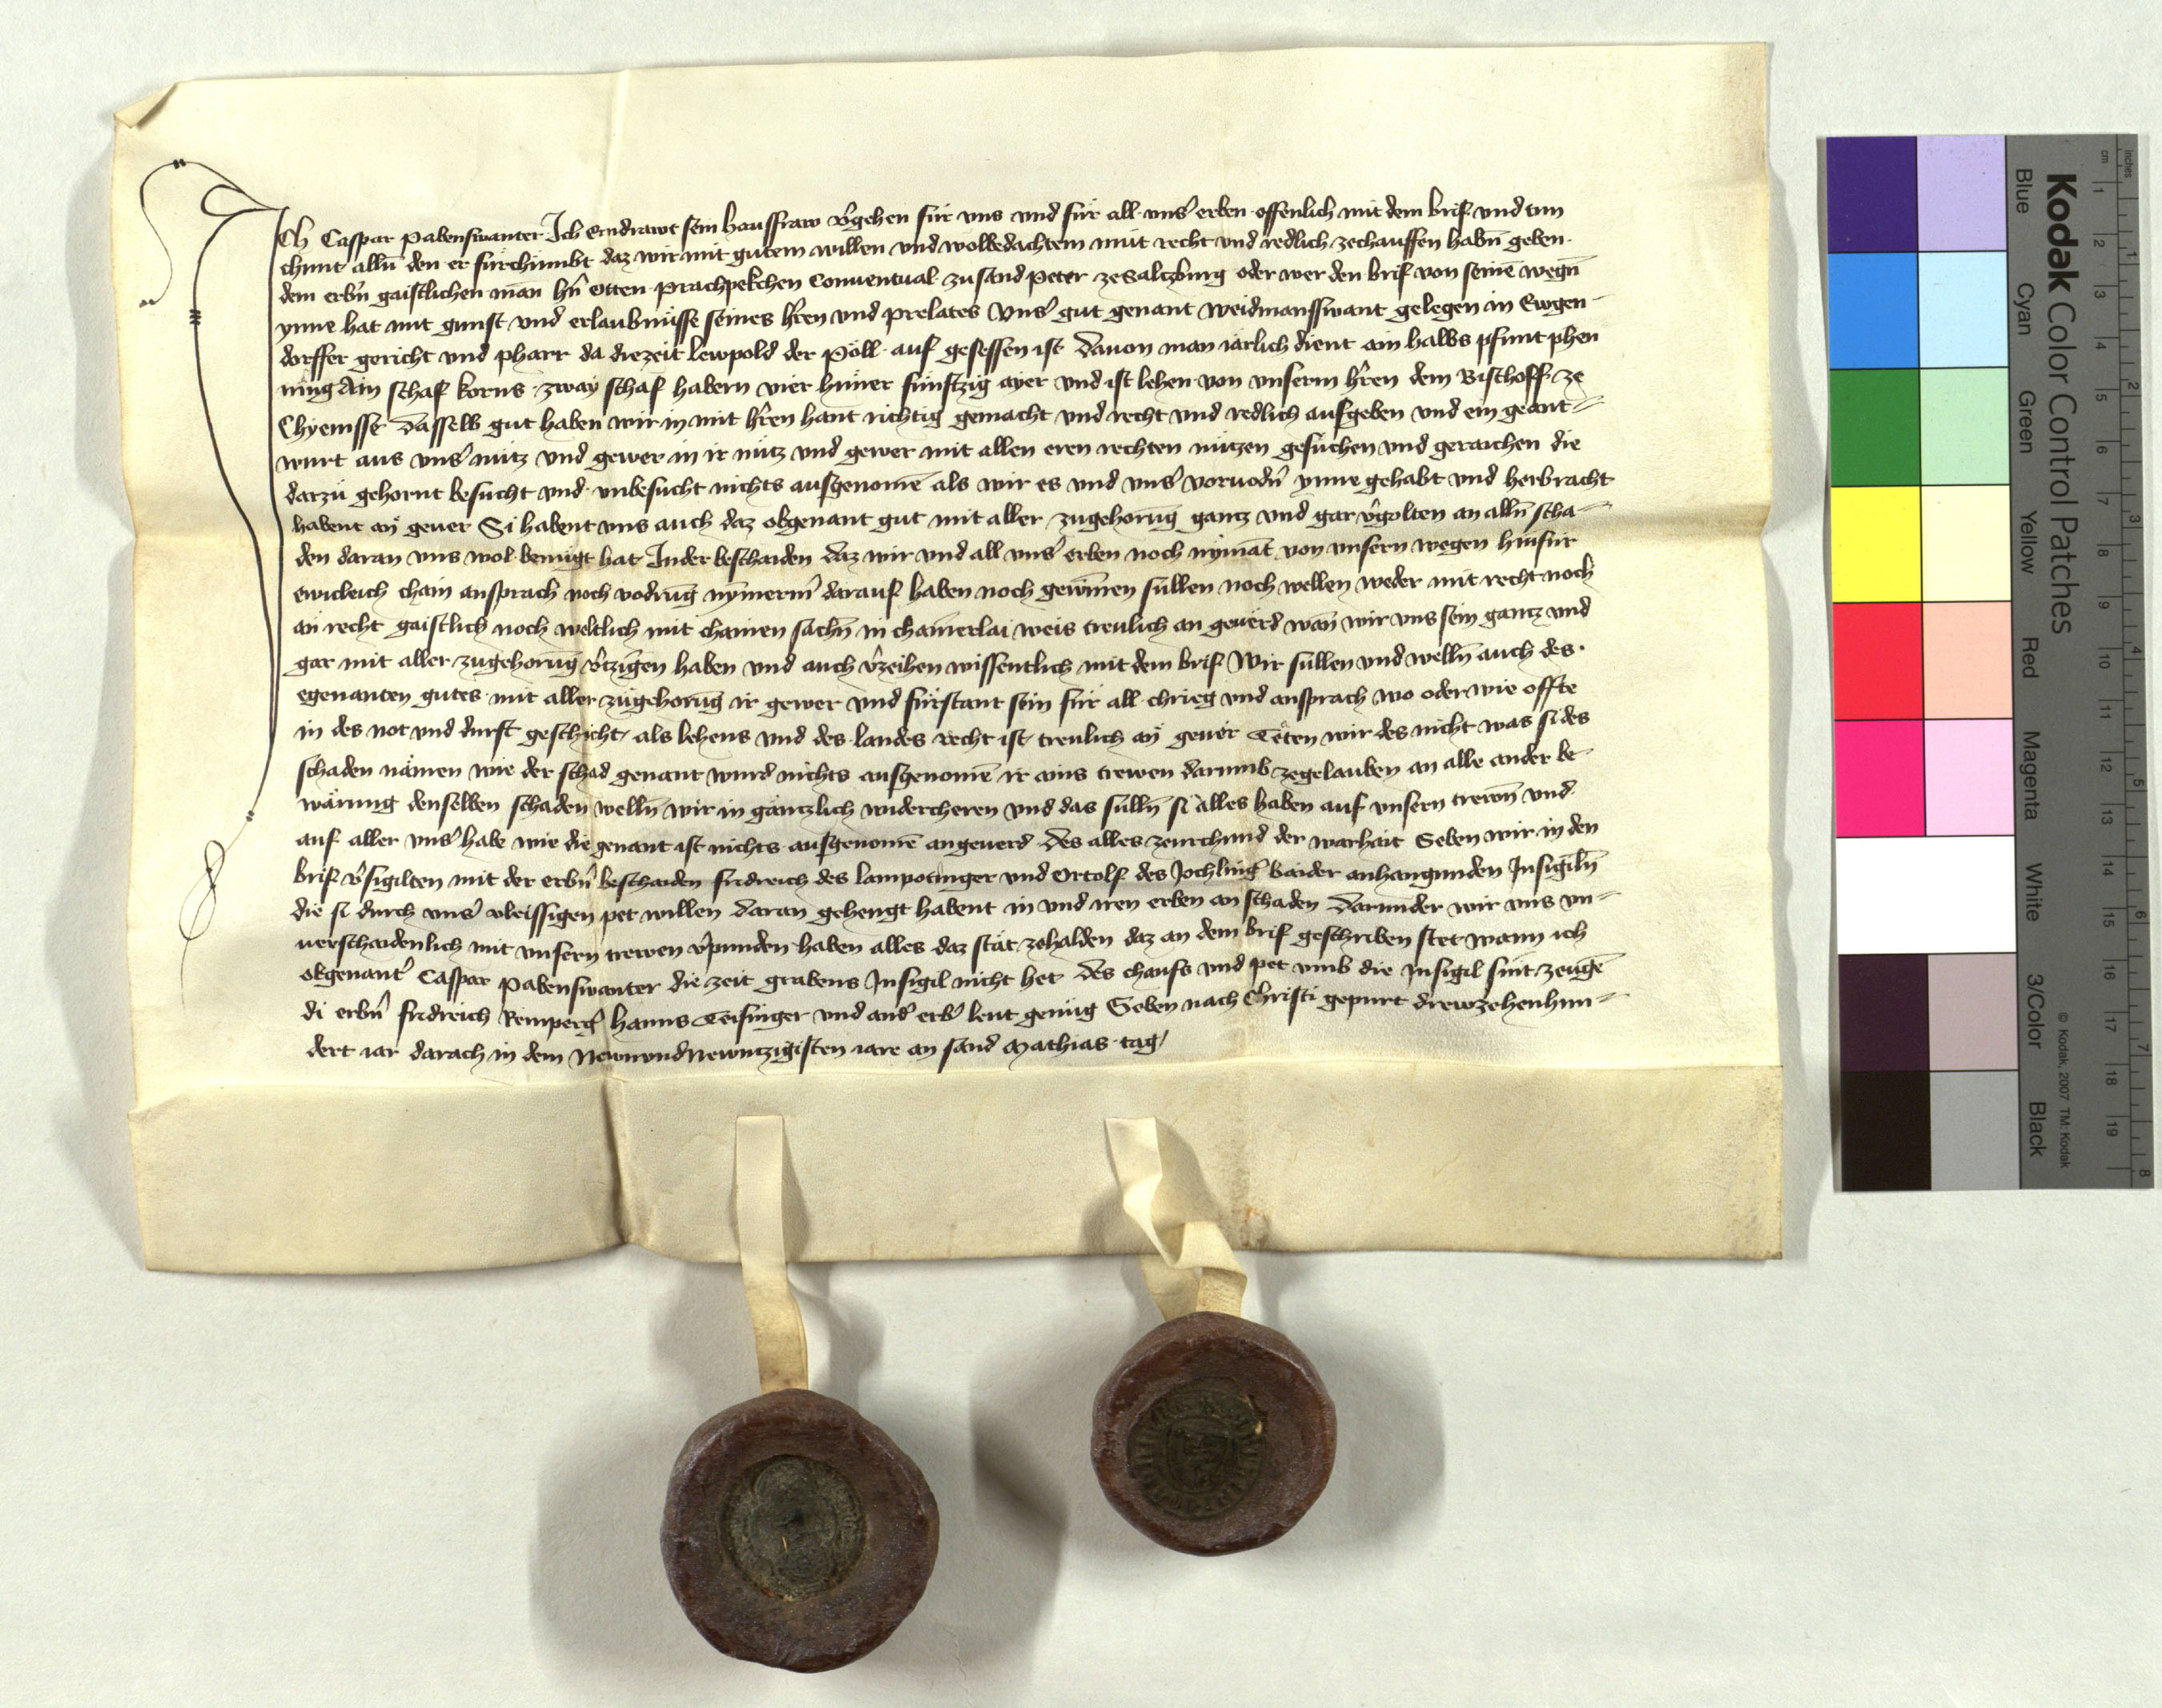 Ich Caspar Pabenswanter Ich Emdrawt sein hausfraw v̄gehen für vns vnd für all vnsʼ erben offenlich mit dem brif vnd tun
chunt alln̄ den er fürchümbt daz wir mit gutem willen vnd wolbedachtem müt recht vnd redlich zechauffen habn̄ geben
dem erbn̄ gaistlichen man hn̄ Otten Prachpekchen Conuentual zu sand Peter ze Saltzburg oder wer den brif von seinē wegn̄
ynne hat mit gunst vnd erlaubnüsse seines hr̄en vnd prelates Vnsʼ gut genant Weidmansswant gelegen in Ewgen-
dorffer gericht vnd pharr da diezeit Lewpold der Pöll auf gesessen ist dauon man iärlich dient ain halbs pfunt phen
ning Ain schaf korns zway schaf habern vier hüner fünftzig ayer vnd ist lehen von vnserm hr̄en dem Bischoff ze
Chyemsse Dasselb gut haben wir in mit hr̄en hant richtig gemacht vnd recht vnd redlich aufgeben vnd ein geant-
wurt aus vnsʼ nütz vnd gewer in ir nütz vnd gewer mit allen eren rechten nützen gesüchen vnd geraichen die
darzü gehornt besucht vnd vnbesucht nichts ausgenomē als wir es vnd vnsʼ voruodn̄ ynne gehabt vnd herbracht
habent an geuer Si habent vns auch daz obgenant gut mit aller zugehorūg gantz vnd gar v̄golten an alln̄ scha-
den daran vns wol benügt hat In der beschaiden daz wir vnd all vnsʼ erben noch nymāt von vnsern wegen hinfür
ewicleich chain ansprach noch vodrūg nymermʼ darauf haben noch gewinnen süllen noch wellen weder mit recht noch
an recht gaistlich noch weltlich mit chainen sachn̄ in chainerlai weis treulich an geuerd wan̄ wir vns sein gantz vnd
gar mit aller zugehorūg v̄tzigen haben vnd auch v̄zeihen wissentlich mit dem brif Wir süllen vnd welln̄ auch des
egenanten gutes mit aller zugehorūg ir gewer vnd fürstant sein für all chrieg vnd ansprach wo oder wie offte
in des not vnd durft geschicht als lehens vnd des landes recht ist treulich an geuer Teten wir des nicht was si des
schaden nämen wie der schad genant wurd nichts ausgenomē ir ains trewen darumb zegelauben an alle ander be-
wärung denselben schaden welln̄ wir in gäntzlich widercheren vnd das sülln̄ si alles haben auf vnsern trewn̄ vnd
auf aller vnsʼ habe wie die genant ist nichts ausgenomē angeuerd Des alles zeurchund der warhait Geben wir in den
brif v̄sigilten mit der erbn̄ beschaiden Fridreich des Lampotinger vnd Ortolf des Jochlingʼ baider anhangunden Insigiln̄
die si durch vnsʼ vleissigen pet willen daran gehengt habent in vnd iren erben an schaden Darunder wir vns vn-
uerschaidenlich mit vnsern trewen v̄punden haben alles daz stät zehalden daz an dem brif geschriben stet wann ich
obgenantʼ Caspar Pabenswanter die zeit grabens Insigil nicht het Des chaufs vnd pet vmb die Insigil sint zeugē
di erbn̄ Fridreich Rempergʼ Hanns Teisinger vnd andʼ erbʼ leut genüg Geben nach Christi gepurt drewzehenhun-
dert iar darach in dem Newnvndnewntzigisten iare an sand Mathias tag
Kodak Color Control Patches
Blue Cyan Green Yellow Red Magenta White 3/Color Black
© Kodak, 2007 TM: Kodak
Inches 1 2 3 4 5 6 7 8
cm 1 2 3 4 5 6 7 8 9 10 11 12 13 14 15 16 17 18 19